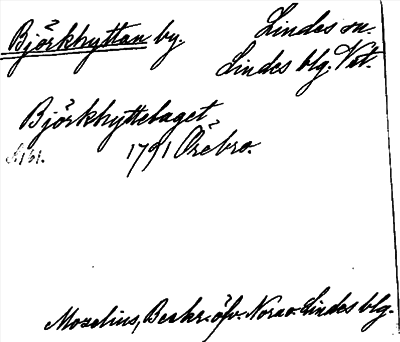 Björkhyttan by.
Lindes sn.
Lindes blg. Vst.
Björkhyttelaget
1791 Örebro.
Mozelius, Beskr. öfv. Nora o. Lindes blg.